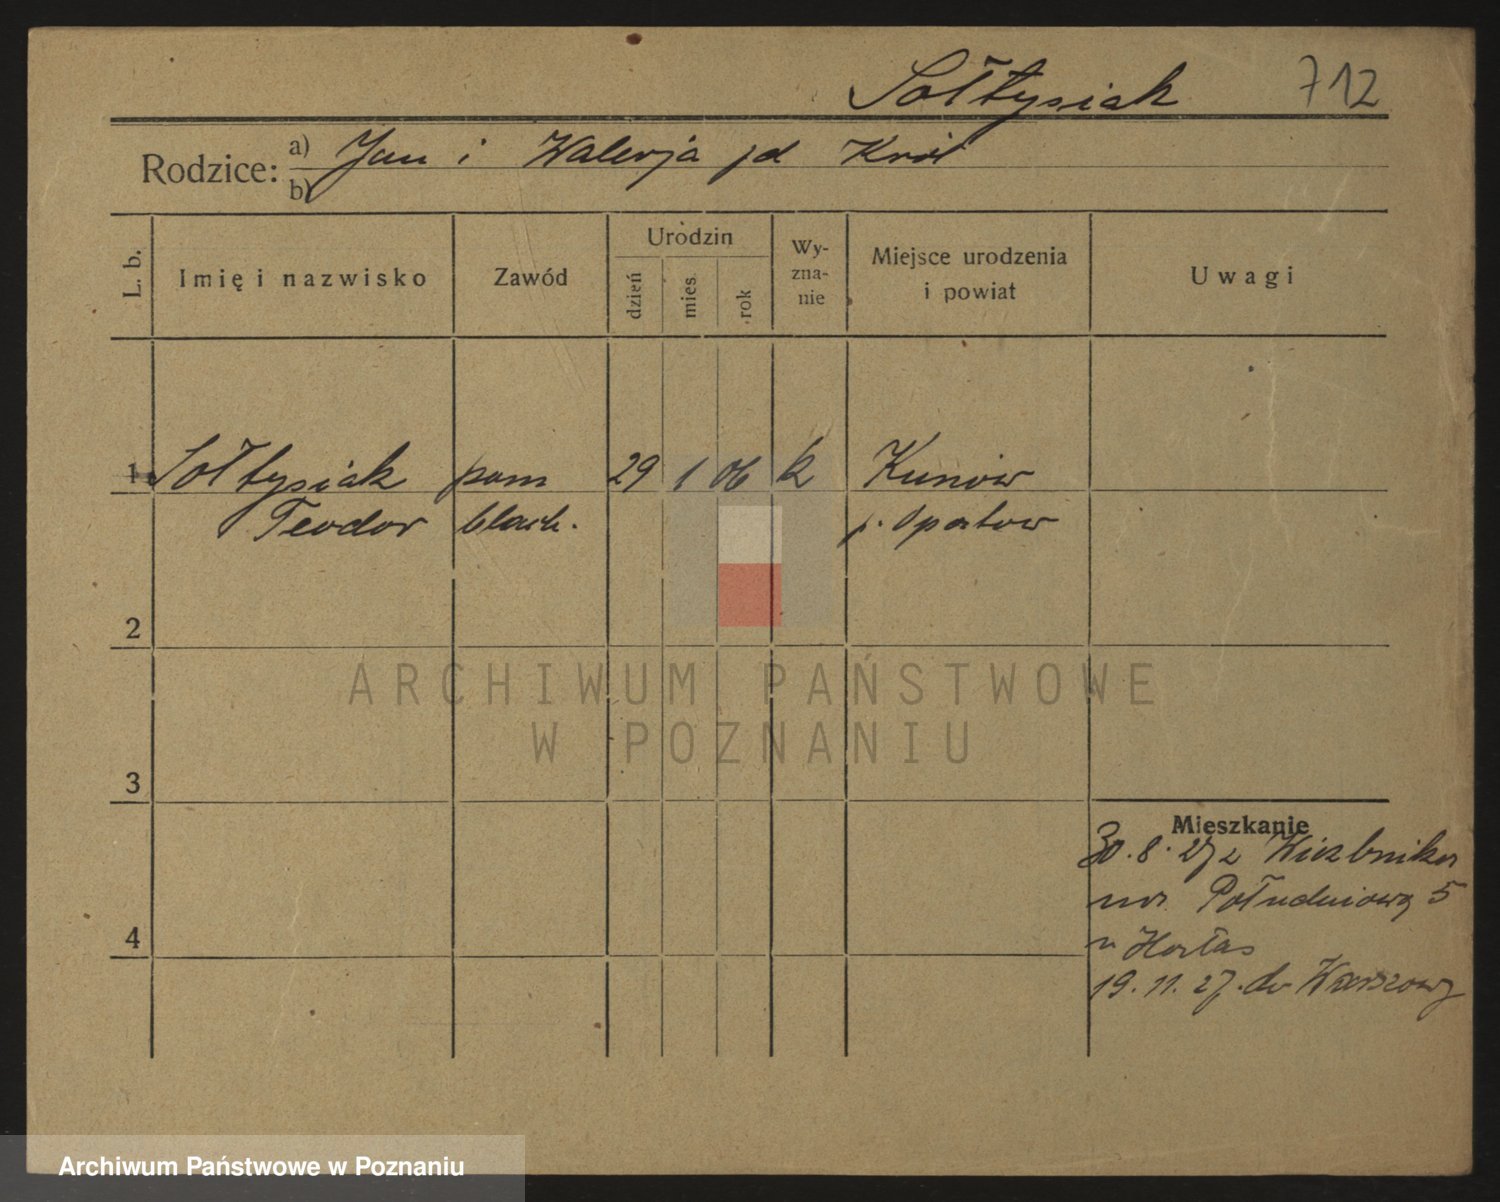 Sołtysiak 712
Rodzice: a) Jan i Walerja jd Król
b)
L. b. Imię i nazwisko Zawód Urodzin dzień mies. rok Wy-zna-nie Miejsce urodzenia i powiat Uwagi
1 Sołtysiak pom 29 1 06 k Kunów
Teodor blach. p. Opatow
2
ARCHIWUM PAŃSTWOWE
W POZNANIU
3
Mieszkanie
30. 8. 27 z
Południową 5
4
19. 11. 27. do Warszawy
Archiwum Państwowe w Poznaniu